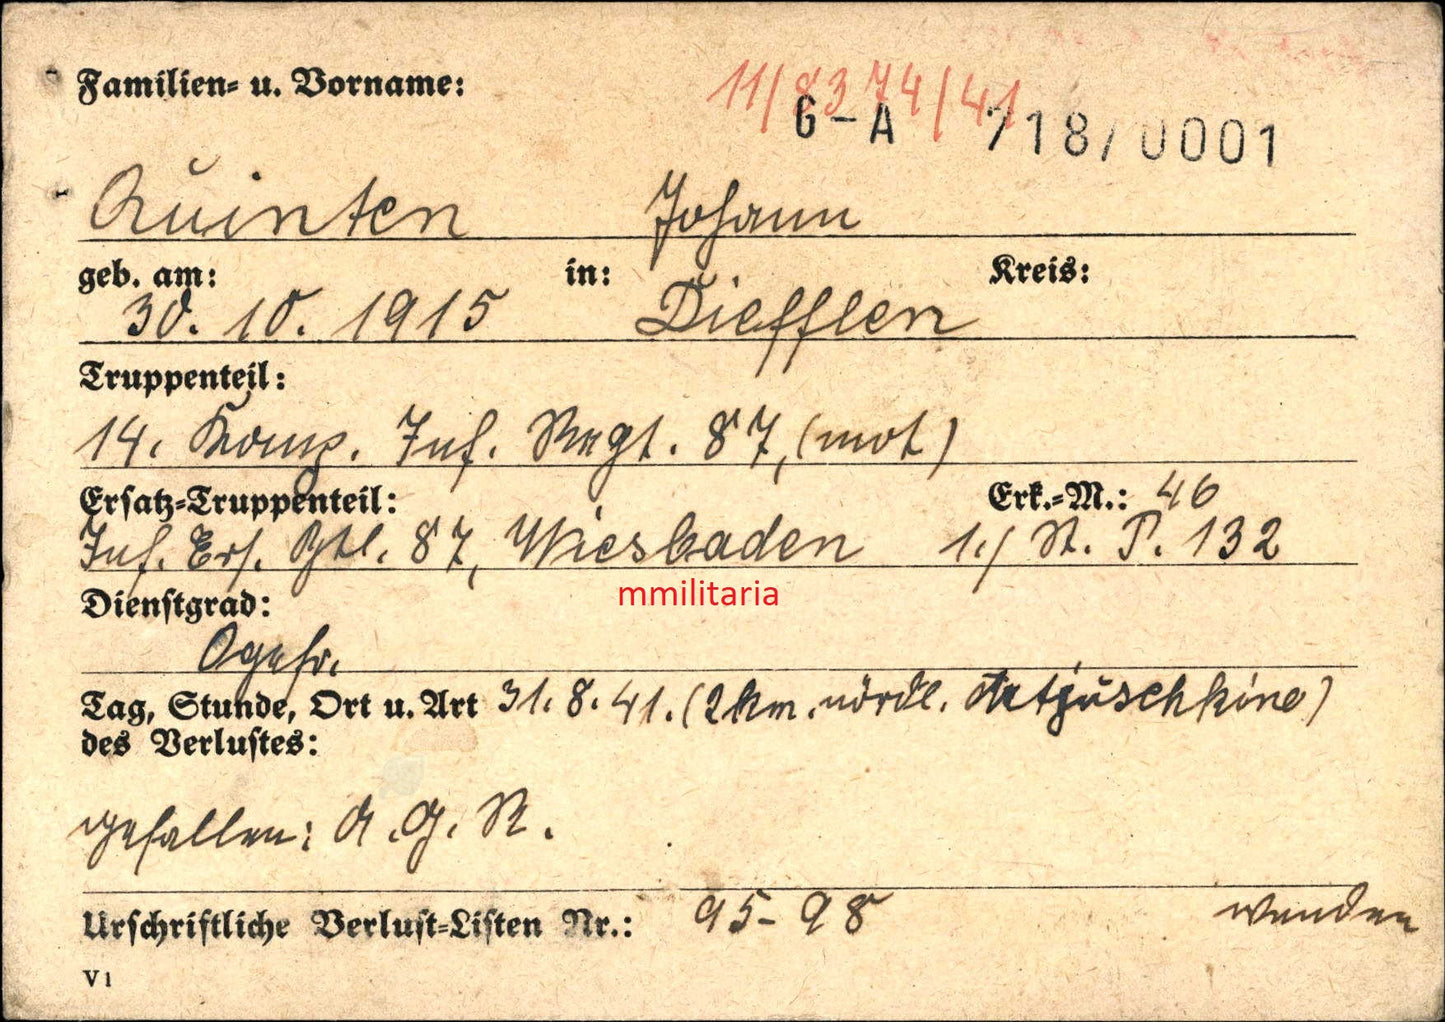 11/8374/41
Familien- u. Vorname:
G-A 718/0001
Quinten Johann
geb. am: in: Kreis:
30. 10. 1915 Diefflen
Truppenteil:
14. Komp. Inf. Regt. 87, (mot)
Ersatz-Truppenteil: Erk.-M.: 46
Inf. Ers. Btl. 87, Wiesbaden 1./ R. 132
mmilitaria
Dienstgrad:
Ogefr.
Tag, Stunde, Ort u. Art 31. 8. 41. (2km. nördl.
des Verlustes:
gefallen: A. G. R.
Urschriftliche Verlust-Listen Nr.: 95-98 wenden
V1